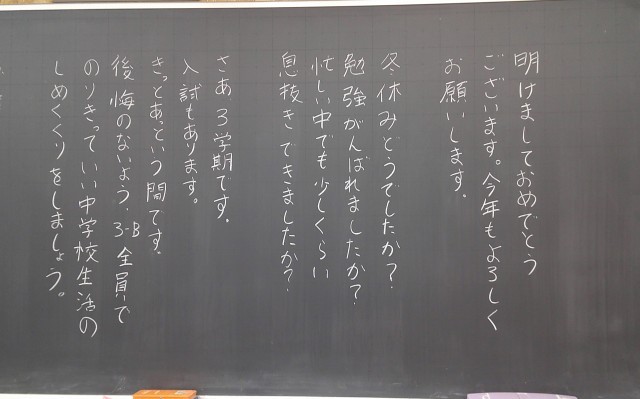 明けましておめでとう
ございます。今年もよろしく
お願いします。
冬休みどうでしたか？
勉強がんばれましたか？
忙しい中でも少しくらい
息抜きできましたか？
さあ、3学期です。
入試もあります。
きっとあっという間です。
後悔のないよう、3-B全員で
のりきっていい中学校生活の
しめくくりをしましょう。